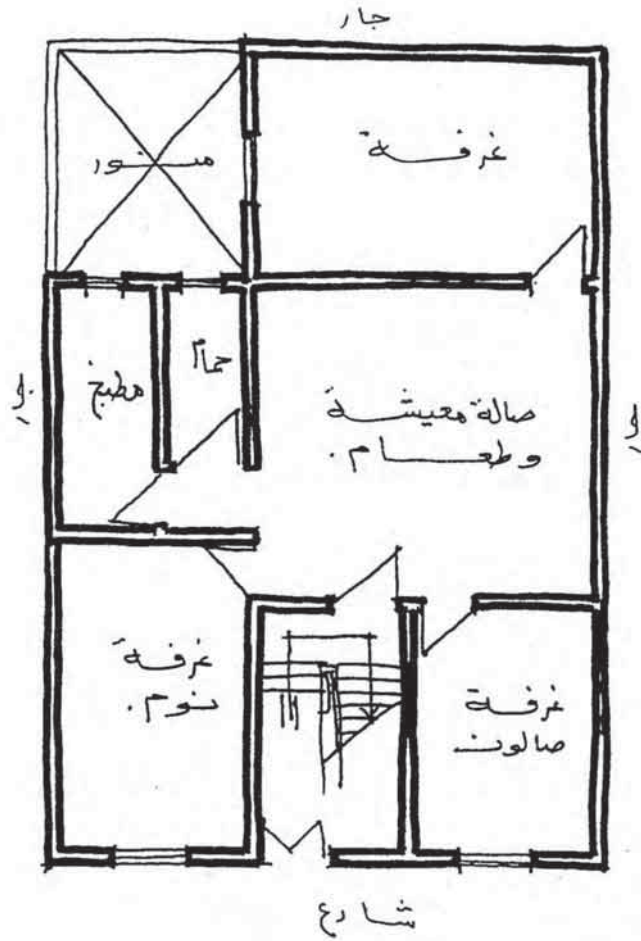 جار
منور
غرفة
حمام
مطبخ
جار
جار
صالة معيشة
وطعام.
غرفة
نوم.
غرفة
صالون
شارع